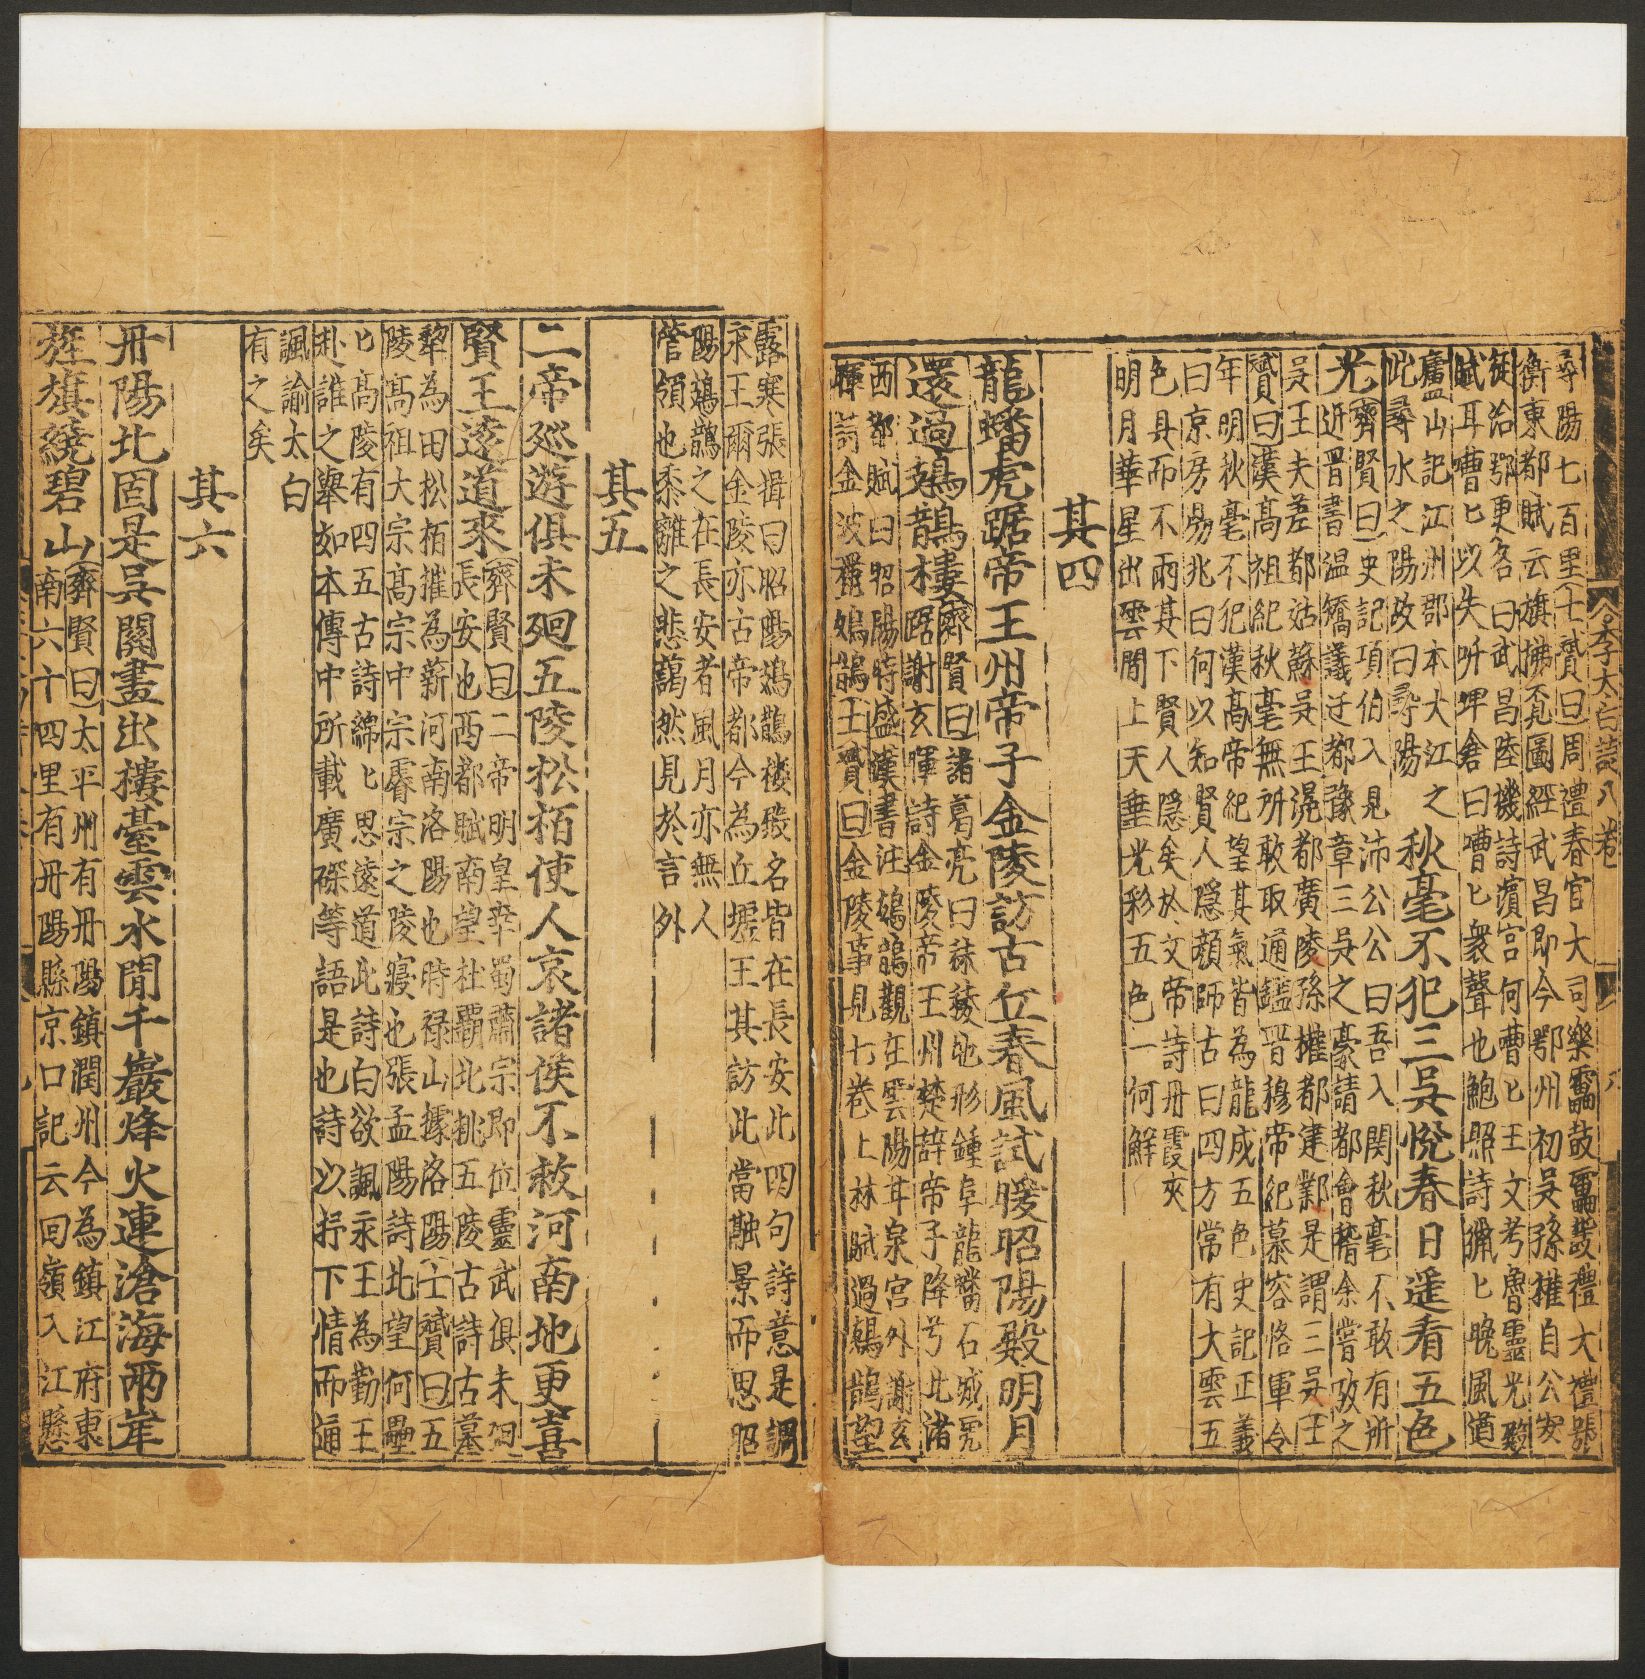 尋陽七百里士贇曰周禮春官大司樂靁鼓靁鼗禮大禮號
衡東都賦云旗拂霓圖經武昌即今鄂州初吳孫權自公安
徙治鄂更名曰武昌陸機詩濱宫何曹匕王文考魯靈光殿
賦耳嘈匕以失听埤倉曰嘈匕衆聲也鮑照詩獵匕晚風遒
廬山記江州郡本大江之
此尋水之陽故曰尋陽
秋毫不犯三吳悅春日遥看五色
光齊賢曰史記項伯入見沛公公曰吾入関秋毫不敢有所
近晋書温嶠議迁都豫章三吳之豪請都會稽余嘗攷之
吳王夫差都姑蘇吳王濞都廣陵孫權都建鄴是謂三吳士
贇曰漢髙祖紀秋毫無所敢取通鑑晋穆帝紀慕容恪軍令
年明秋毫不犯漢髙帝紀望其氣皆為龍成五色史記正義
曰京房易兆曰何以知賢人隱顔師古曰四方常有大雲五
色具而不雨其下賢人隱矣於文帝詩丹霞夾
明月華星出雲間上天垂光彩五色一何鮮
其四
龍蟠虎踞帝王州帝子金陵訪古丘春風試暖昭陽殿明月
還過鳷鵲樓齊賢曰諸葛亮曰秣陵地形鍾阜龍蟠石城虎
踞謝玄暉詩金陵帝王州楚辞帝子降兮北渚
西都賦曰昭陽特盛漢書注鳷鵲觀在雲陽甘泉宫外謝玄
暉詩金波麗鳷鵲士贇曰金陵事見七卷上林賦過鳷鵲望
露寒張揖曰昭陽鳷鵲楼殿名皆在長安此四句詩意是謂
永王爾金陵亦古帝都今為丘墟王其訪此當融景而思昭
陽鳷鵲之在長安者風月亦無人
管領也黍離之悲藹然見於言外
其五
二帝廵遊俱未廻五陵松栢使人哀諸侯不救河南地更喜
賢王逺道來齊賢曰二帝明皇幸蜀肅宗即位靈武俱未廻
長安也西都賦南望杜霸北眺五陵古詩古墓
犂為田松栢摧為薪河南洛陽也時禄山據洛陽士贇曰五
陵高祖大宗髙宗中宗睿宗之陵寝也張孟陽詩北望何壘
匕髙陵有四五古詩綿匕思逺道此詩白欲諷永王為勤王
赴難之舉如本傳中所載廣琛等語是也詩以抒下情而通
諷諭太白
有之矣
其六
丹陽北固是吳関畫出樓臺雲水間千巖烽火連滄海兩岸
旌旗繞碧山齊賢曰太平州有丹陽鎮潤州今為鎮江府東
南六十四里有丹陽縣京口記云回嶺入江懸
李太白詩八卷